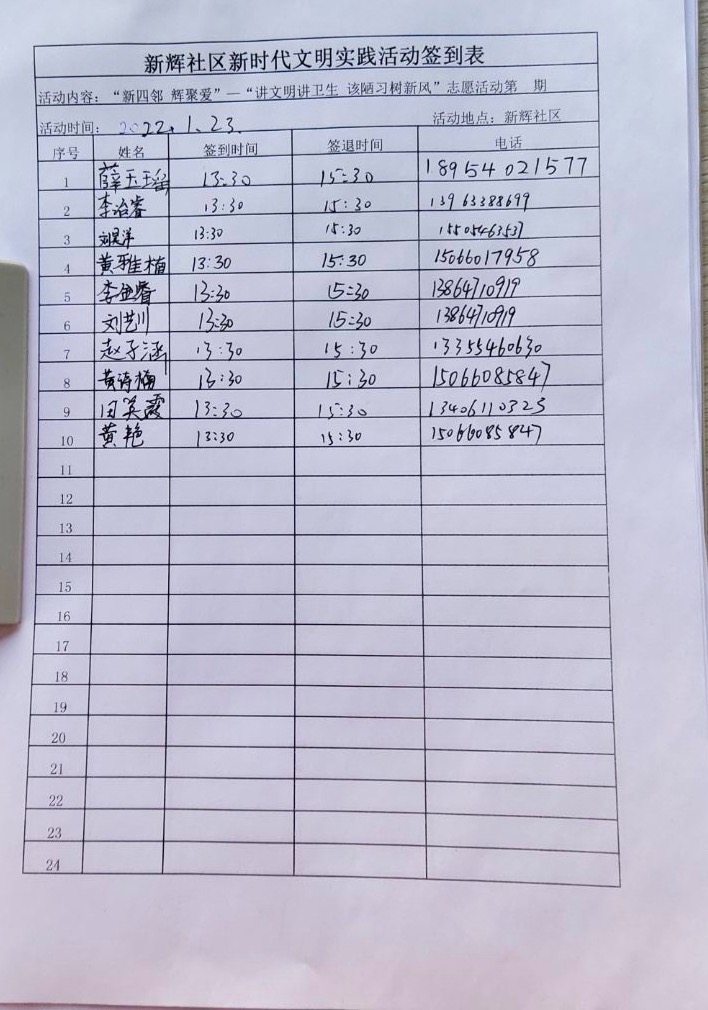 新辉社区新时代文明实践活动签到表
活动内容：“新四邻 辉聚爱”—“讲文明讲卫生 该陋习树新风”志愿活动第 期
活动时间：2022.1.23. 活动地点：新辉社区
序号 姓名 签到时间 签退时间 电话
1 薛玉瑶 13:30 15:30 18954021577
2 李冶睿 13:30 15:30 13963388699
3 刘昊洋 13:30 15:30 15505463537
4 黄雅楠 13:30 15:30 15066017958
5 李金睿 13:30 15:30 13864710919
6 刘艺川 13:30 15:30 13864710919
7 赵子涵 13:30 15:30 13355460630
8 黄诗楠 13:30 15:30 15066085847
9 田英霞 13:30 15:30 13406110325
10 黄艳 13:30 15:30 15066085847
11
12
13
14
15
16
17
18
19
20
21
22
23
24